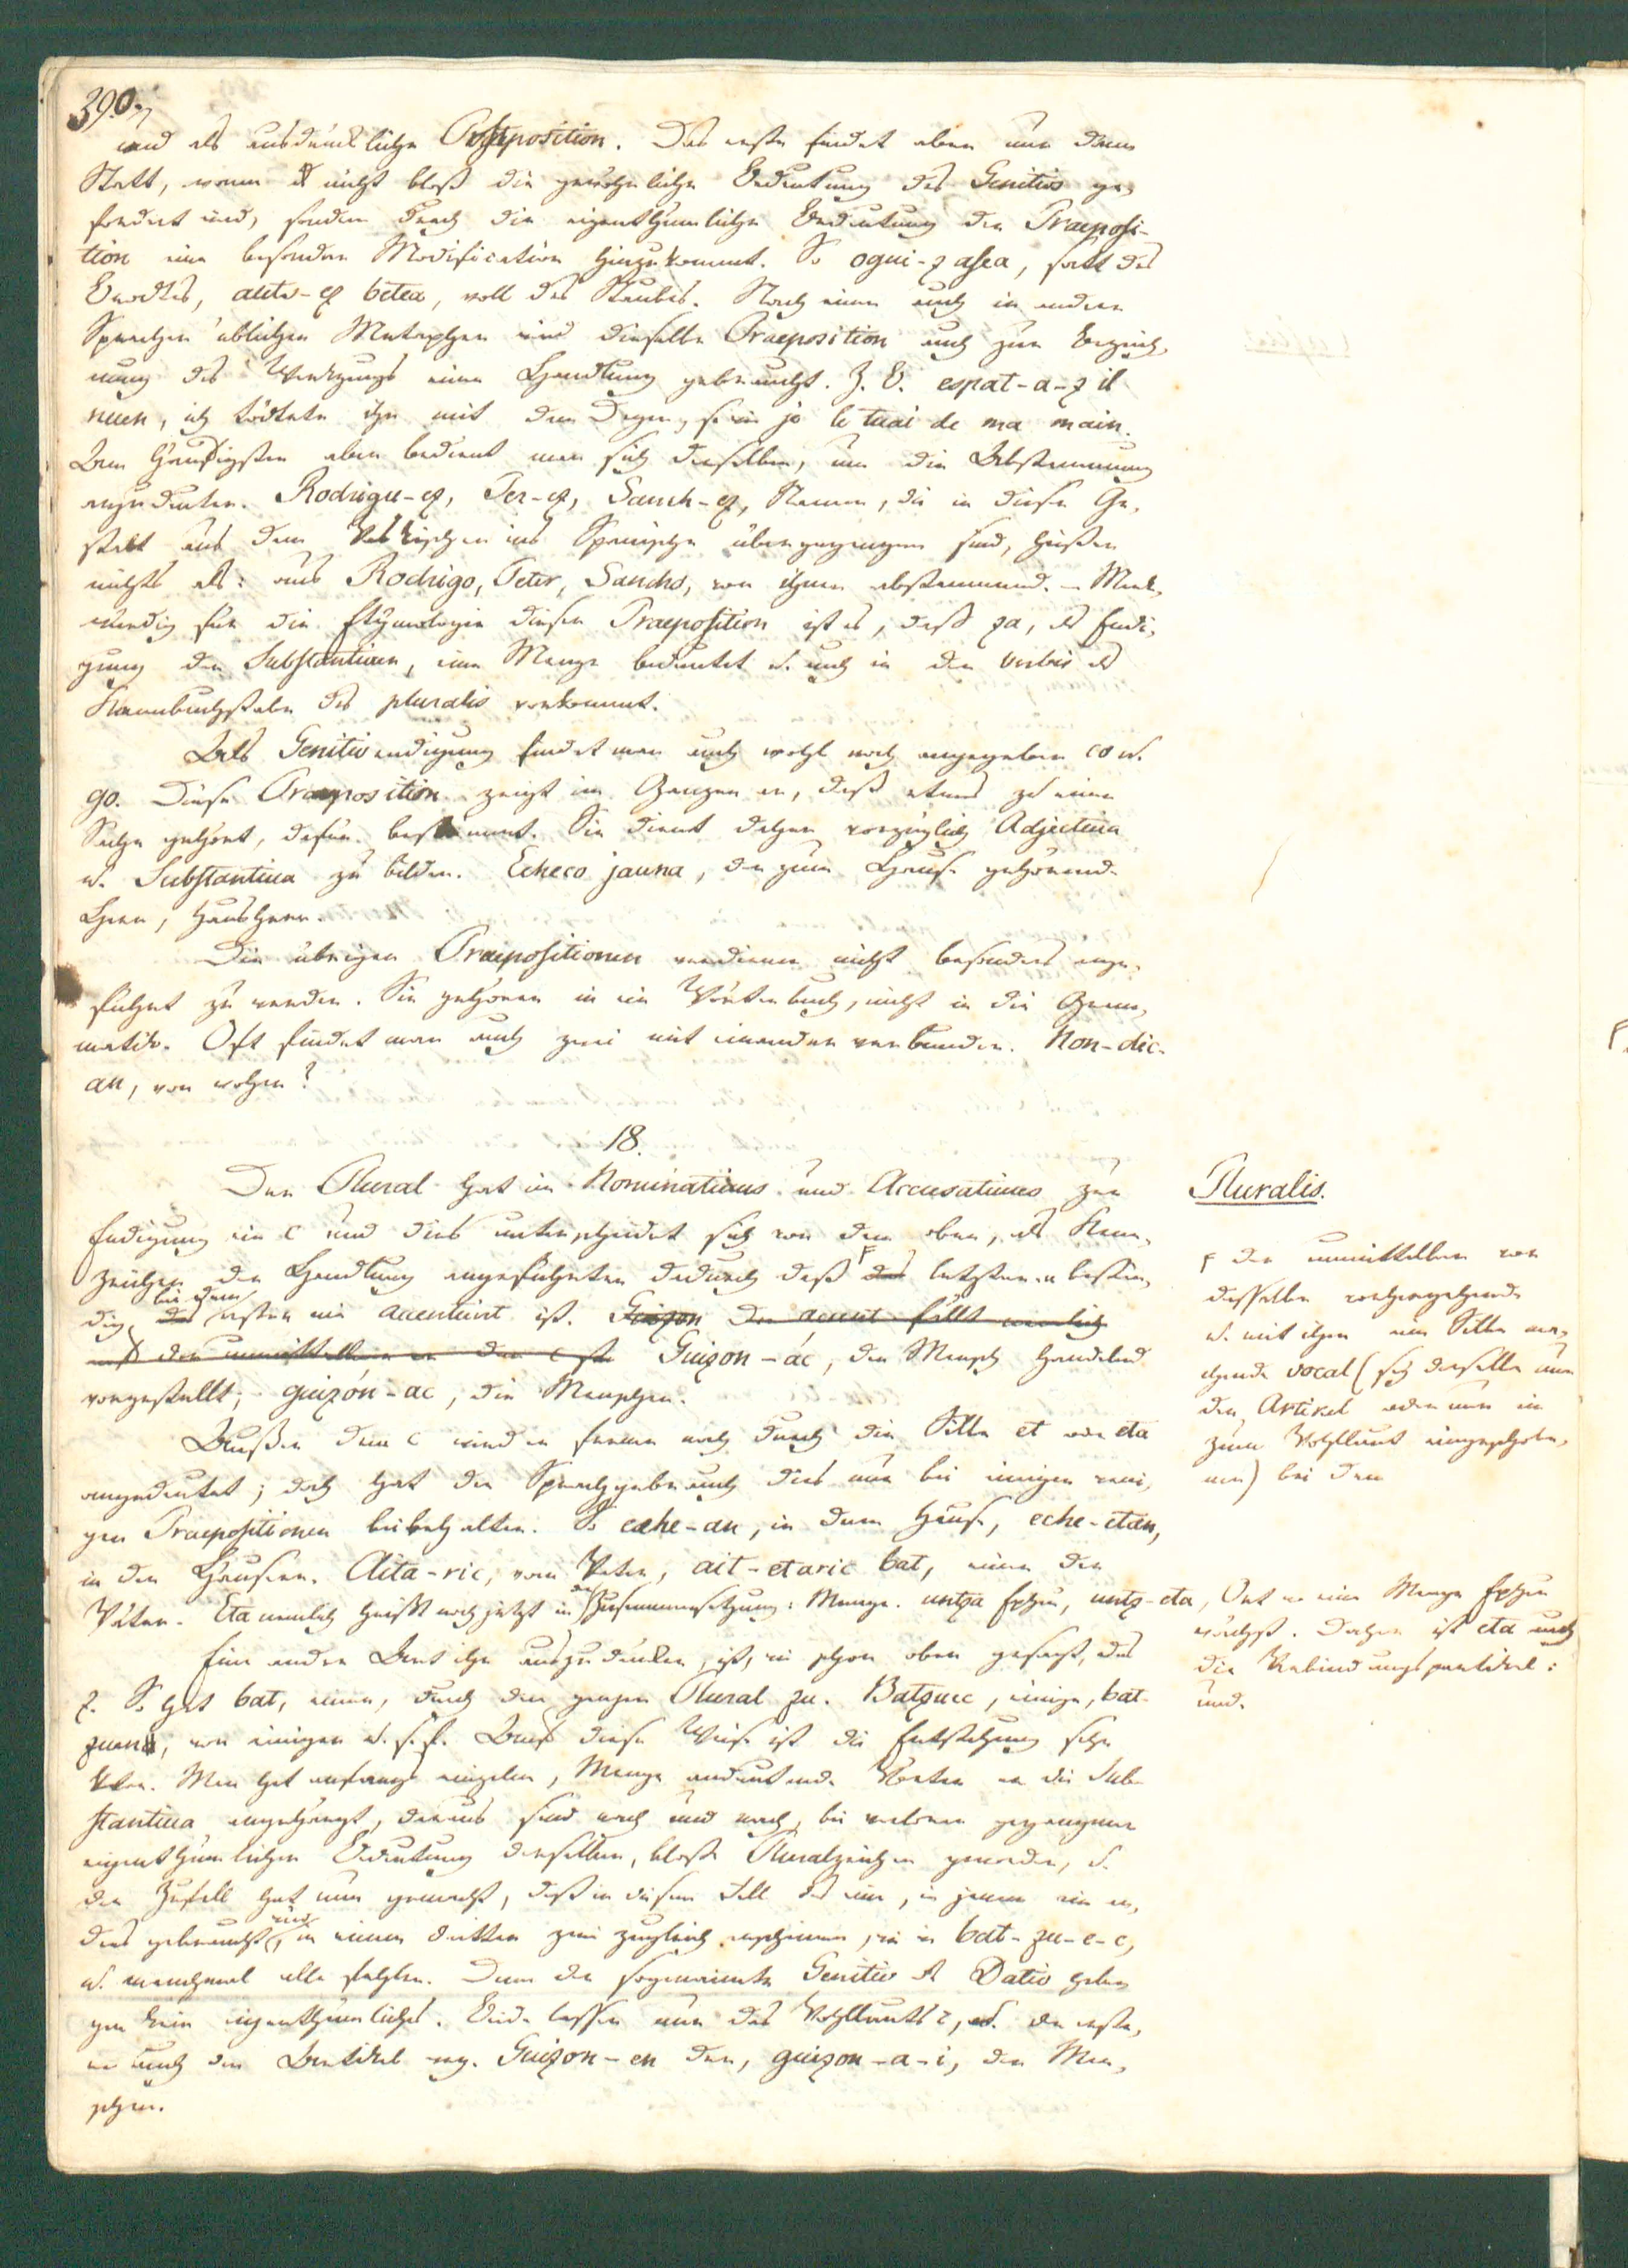 390.
und als ausdrückliche Postposition. Das erste findet aber nur dann
Statt, wenn nicht bloß die gewöhnliche Bedeutung des Genitivs ge-
fordert wird, sondern durch die eigenthümliche Bedeutung der Praeposi-
tion eine besondre Modification hinzukommt. So ogui-z asea, satt des
Brodtes, auts-ez betea, voll des Staubes. Nach einer auch in andern
Sprachen üblichen Metapher wird dieselbe Praeposition auch zur Bezeich-
nung des Werkzeugs einer Handlung gebraucht. Z. B. espat-a-z il
nuen, ich tödtete ihn mit dem Degen, so wie je le tuai de ma main.
Am häufigsten aber bedient man sich derselben, um die Abstammung
anzudeuten. Rodrigu-ez, Per-ez, Sanch-ez, Namen, die in dieser Ge-
stalt aus dem Vaskischen ins Spanische übergegangen sind, heißen
nichts als: aus Rodrigo, Peter, Sancho, von ihnen abstammend. – Merk-
würdig für die Etymologie dieser Praeposition ist es, daß za, als Endi-
gung der Substantiven, eine Menge bedeutet u. auch in den verbis als
Kennbuchstabe des pluralis vorkommt.
Als Genitivendigung findet man auch wohl noch angegeben co u.
go. Diese Praeposition zeigt im Ganzen an, daß etwas zu einer
Sache gehört, dafür bestimmt. Sie dient daher vorzüglich Adjectiva
u. Substantiva zu bilden. Echeco jauna, der zum Hause gehörende
Herr, Hausherr.
Die übrigen Praepositionen verdienen nicht besonders ange-
führt zu werden. Sie gehören in ein Wörterbuch, nicht in die Gram-
matik. Oft findet man auch zwei mit einander verbunden. Non-dic-
an, von woher?
18.
Der Plural hat im Nominativus und Accusativus zur
Endigung ein c und dies unterscheidet sich von dem oben, als Kenn-
zeichen der Handlung angeführten dadurch daß das letztere beständig
bei dem ersten nie accentuirt ist. Guizon der accent fällt nemlich
auf den unmittelbar vor dem c Guizon-ác, der Mensch handelnd
vorgestellt; guizón-ac, die Menschen.
Pluralis.
der unmittelbar vor
desselben vorhergehende
u. mit ihm eine Silbe ma-
chende vocal (sey derselbe nun
der Artikel oder nur ein
zum Wohllaut eingeschobe-
ner) bei dem
Außer dem c wird er ferner noch durch die Silbe et oder eta
angedeutet; doch hat der Sprachgebrauch dies nur bei einigen weni-
gen Praepositionen beibehalten. So eche-an, in dem Hause, eche-etan,
in den Häusern. Aita-ric, vom Vater, ait-etaric bat, einer der
Väter. Eta nemlich heißt noch jetzt in der Zusammensetzung: Menge. untza Epheu, untz-eta, Ort wo eine Menge Epheu
wächst. Daher ist eta auch
die Verbindungspartikel:
und.
Eine andre Art ihn auszudrücken, ist, wie schon oben gesagt, das
z. So hat bat, einer, durch den ganzen Plural zu. Batzuec, einige, bat-
zuen, von einigen u. s. f. Auf diese Weise ist die Entstehung sehr
klar. Man hat anfangs einzelne, Menge andeutende Wörter an die Sub-
stantiva angehängt, daraus sind nach und nach, bei verloren gegangener
eigenthümlicher Bedeutung derselben, bloße Pluralzeichen geworden, u.
der Zufall hat nun gemacht, daß in diesem Fall das eine, in jenem ein an-
dres gebraucht wird, in einem dritten zwei zugleich erscheinen, wie in bat-zu-e-c,
u. manchmal alle fehlen. Denn der sogenannte Genitiv u. Dativ haben
gar kein eigenthümliches. Beide lassen nur das Wohllauts , u. der erste,
auch den Artikel weg. Guizon-en der, guizon-a-i, den Men-
schen.